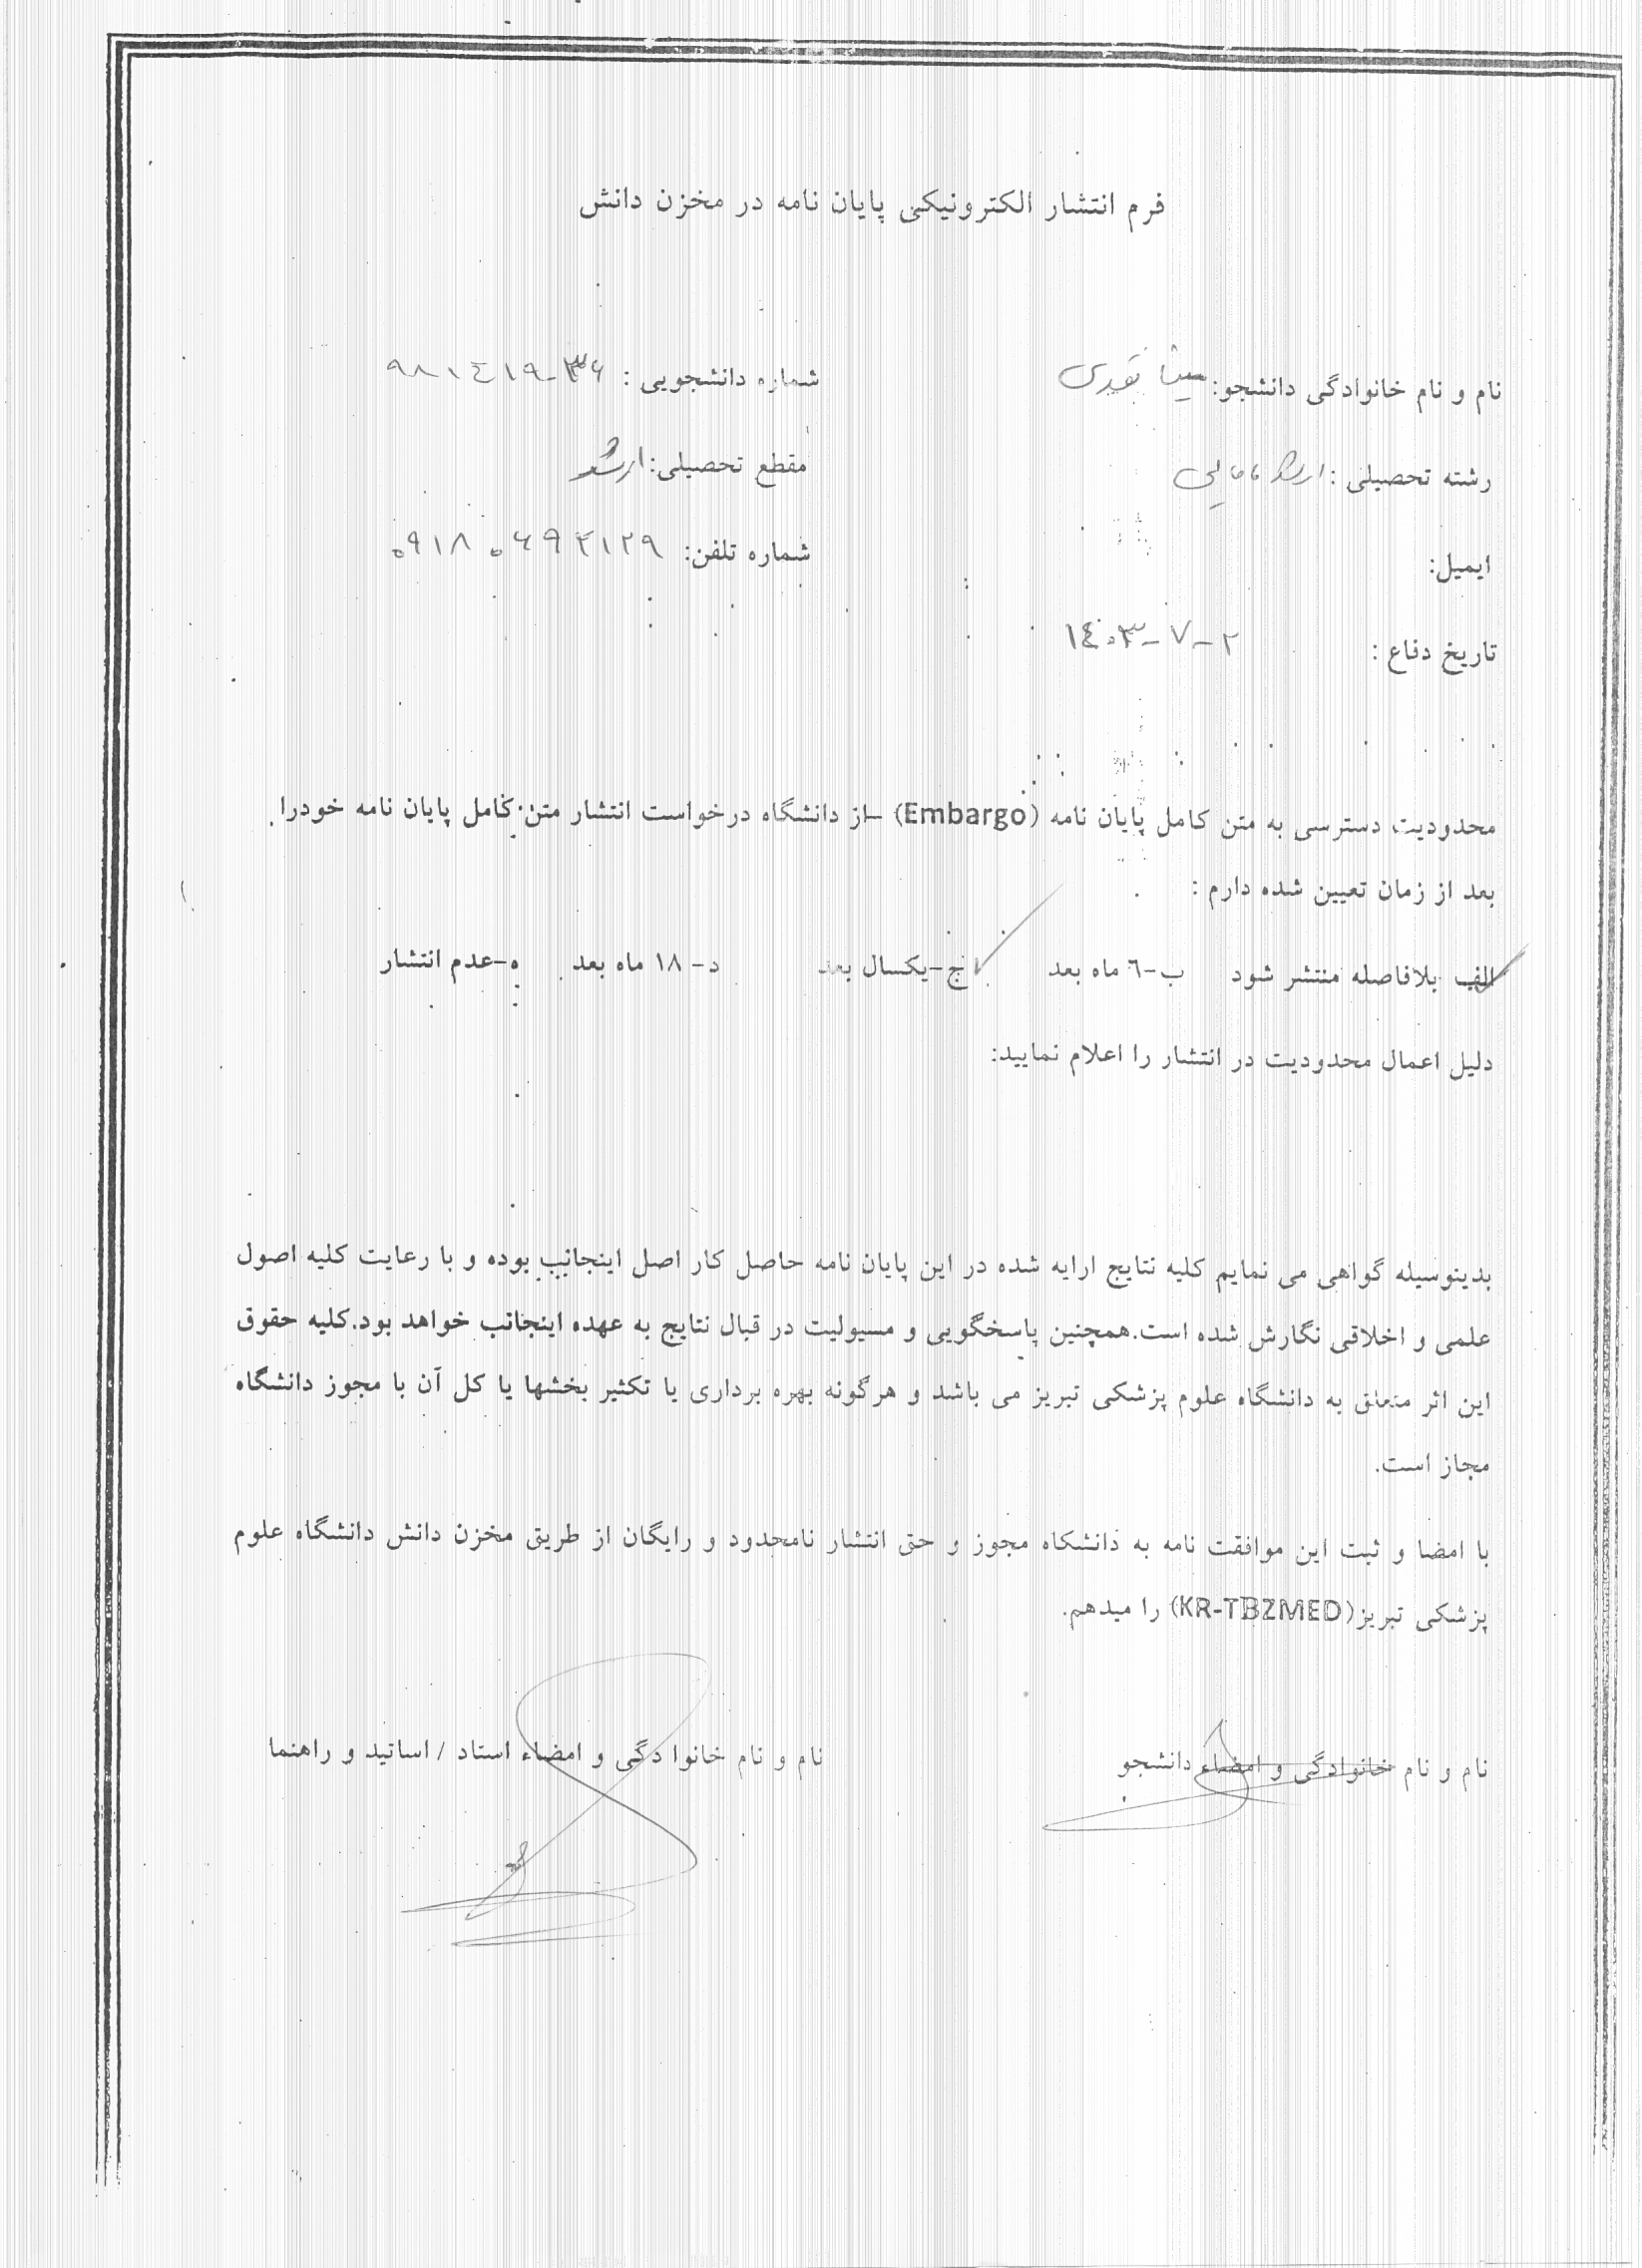 فرم انتشار الکترونیکی پایان نامه در مخزن دانش
نام و نام خانوادگی دانشجو: شماره دانشجویی :
رشته تحصیلی : مقطع تحصیلی: ارشد
ایمیل: شماره تلفن: ۰۹۱۸۰۶۹۴۱۲۹
تاریخ دفاع : ۱۴۰۳-۷-۲
محدودیت دسترسی به متن کامل پایان نامه (Embargo) –از دانشگاه درخواست انتشار متن کامل پایان نامه خودرا
بعد از زمان تعیین شده دارم :
الف بلافاصله منتشر شود ب-٦ ماه بعد ج-یکسال بعد د- ۱۸ ماه بعد ه-عدم انتشار
دلیل اعمال محدودیت در انتشار را اعلام نمایید:
بدینوسیله گواهی می نمایم کلیه نتایج ارایه شده در این پایان نامه حاصل کار اصل اینجانب بوده و با رعایت کلیه اصول
علمی و اخلاقی نگارش شده است.همچنین پاسخگویی و مسیولیت در قبال نتایج به عهده اینجانب خواهد بود.کلیه حقوق
این اثر متعلق به دانشگاه علوم پزشکی تبریز می باشد و هرگونه بهره برداری یا تکثیر بخشها یا کل آن با مجوز دانشگاه
مجاز است.
با امضا و ثبت این موافقت نامه به دانشکاه مجوز و حق انتشار نامحدود و رایگان از طریق مخزن دانش دانشگاه علوم
پزشکی تبریز(KR-TBZMED) را میدهم.
نام و نام خانوادگی و امضاء دانشجو نام و نام خانوا دگی و امضاء استاد / اساتید و راهنما